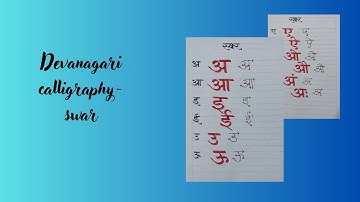 Devanagari
calligraphy-
swar
स्वर
अ अ अ
आ आ आ
इ इ इ
ई ई ई
उ उ उ
ऊ ऊ ऊ
स्वर
ए ए ए
ऐ ऐ
ओ ओ
औ औ
अं अं
अः अः